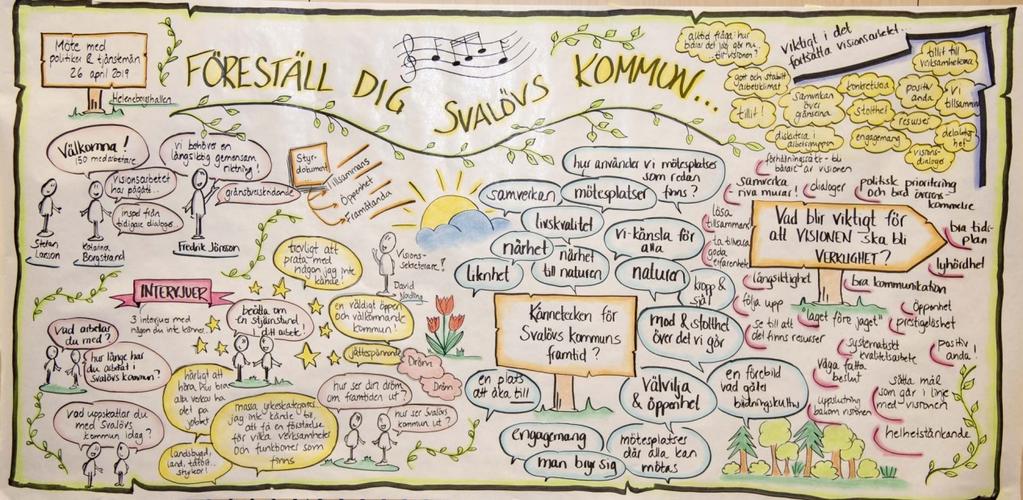 Möte med
politiker & tjänstemän
26 april 2019
Heleneborgshallen
FÖRESTÄLL DIG SVALÖVS KOMMUN...
Välkomna!
150 medarbetare
visionsarbetet
har pågått...
inspel från
tidigare dialoger...
vi behöver en
långsiktig gemensam
riktning!
gränsöverskridande
Stefan
Larsson
Katarina
Borgstrand
Fredrik Jönsson
Styr-
dokument
Tillsammans
Öppenhet
Framåtanda
Visions-
sekreterare!
David
trevligt att
prata med
någon jag inte
kände!
INTERVJUER
3 intervjuer med
någon du inte känner
berätta om
en stjärnstund
i ditt arbete!
en väldigt öppen
och välkomnande
kommun!
jättespännande
Dröm
Dröm
vad arbetar
du med?
hur länge har
du arbetat i
Svalövs kommun?
vad uppskattar du
med Svalövs
kommun idag?
härligt att
höra. Dur bra
alla verkar ha
det på
jobbet
landsbygd,
land, tätort...
styrkor!
massa yrkeskategorier
jag inte kände till,
att få en förståelse
för vilka verksamheter
och funktioner som
finns
hur ser din dröm
om framtiden ut?
hur ser Svalövs
kommun ut?
hur använder vi mötesplatser
som redan
finns?
samverkan
mötesplatser
livskvalitet
närhet
närhet
till naturen
vi-känsla för
alla
litenhet
naturen
kropp &
själ
Kännetecken för
Svalövs kommuns
framtid?
mod & stolthet
över det vi gör
en plats
att åka till
välvilja
& öppenhet
en förebild
vad gäller
bildningskultur
engagemang
man bryr sig
mötesplatser
där alla kan
mötas
viktigt i det
fortsatta visionsarbetet...
alltid fråga: hur
bidrar det jag gör nu
...till visionen?
gott och stabilt
arbetsklimat
tillit!
samverkan
över
gränserna
diskutera i
arbetsgruppen
konkretisera
stolthet
engagemang
positiv
anda
resurser
tillit till
verksamheterna
vi
tillsammans
delaktig-
het
visions-
dialoger
förhållningssätt - bli
bärare av visionen
samverka -
riva murar!
dialoger
politisk prioritering
och bred överens-
kommelse
lösa
tillsammans
ta tillvara
goda
erfarenheter
Vad blir viktigt för
att VISIONEN ska bli
VERKLIGHET?
bra tids-
plan
lyhördhet
långsiktighet
bra kommunikation
följa upp
"laget före jaget"
Öppenhet
prestigelöshet
se till att
det finns resurser
systematiskt
kvalitetsarbete
positiv
anda!
våga fatta
beslut
sätta mål
som går i linje
med visionen
uppslutning
bakom visionen
helhetstänkande